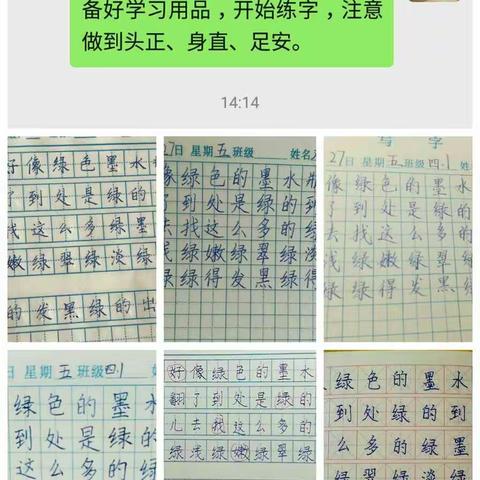 备好学习用品，开始练字，注意
做到头正、身直、足安。
14:14
好像绿色的墨水
了到处是绿的
找这么多绿墨
嫩绿翠绿淡绿
的发黑绿的出
27日 星期五班级 姓名
像绿色的墨水瓶
了到处是绿的到
去找这么多的
浅绿嫩绿翠绿淡
绿绿得发黑绿得
写字
27日 星期五班级四.1 姓
像绿色的墨水
了到处是绿的
去找这么多的
浅绿嫩绿翠绿
绿绿得发黑绿
日 星期五班级四.1
绿色的墨水
到处是绿的
这么多的绿
好像绿色的墨水
翻了到处是绿的
儿去找这么多的
浅绿嫩绿翠绿
绿色的墨水
到处绿的到
么多的绿墨
绿翠绿淡绿